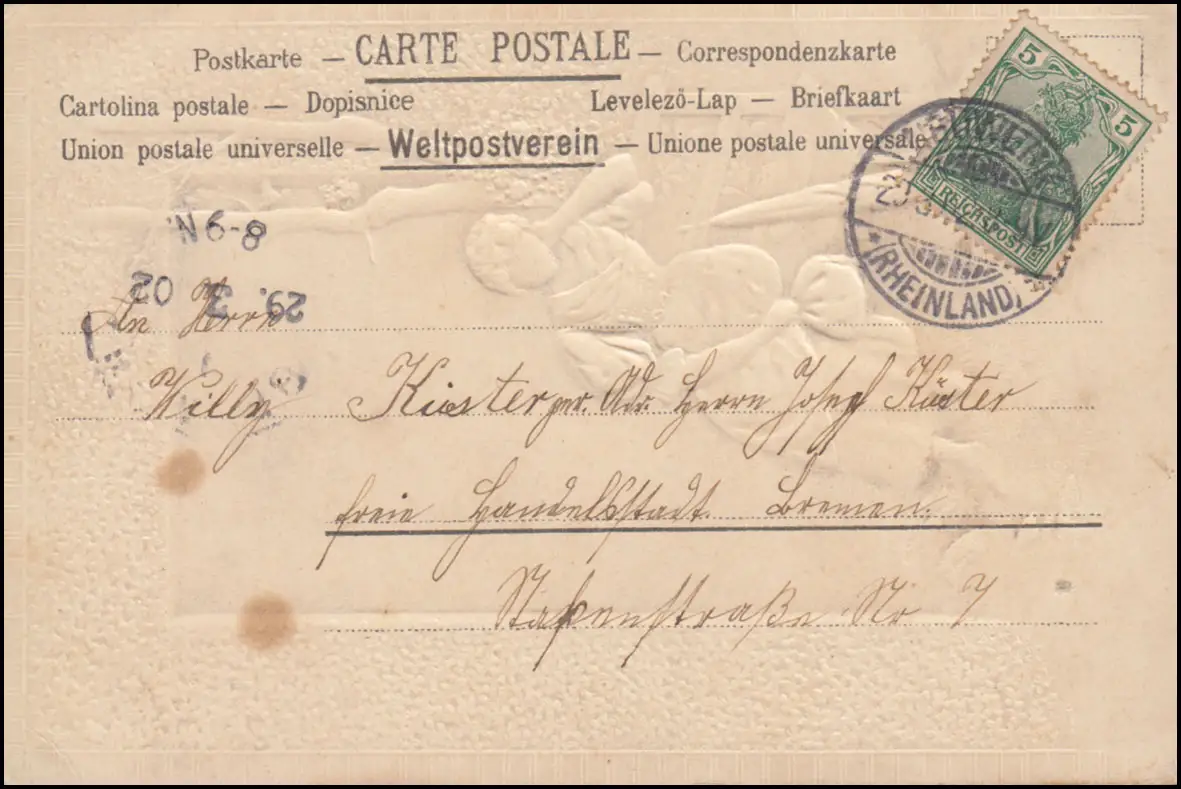 Postkarte — CARTE POSTALE — Correspondenzkarte
Cartolina postale — Dopisnice Levelező-Lap — Briefkaart
Union postale universelle — Weltpostverein — Unione postale universale
5 5
REICHSPOST
* (RHEINLAND) *
N 6-8
29. 3 02
An Herrn
Willy Küster per. Adr. Herrn Josef Küster
freie Handelsstadt Bremen.
Nr 7